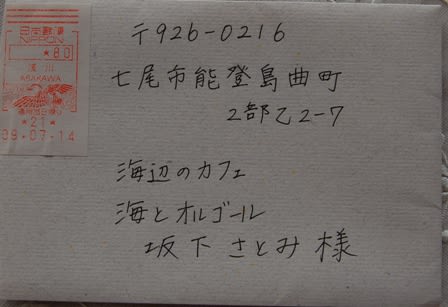 日本郵便
NIPPON
*80
浅川
ASAKAWA
*21*
09.07-14
〒926-0216
七尾市能登島曲町
2部乙2-7
海辺のカフェ
海とオルゴール
坂下さとみ様